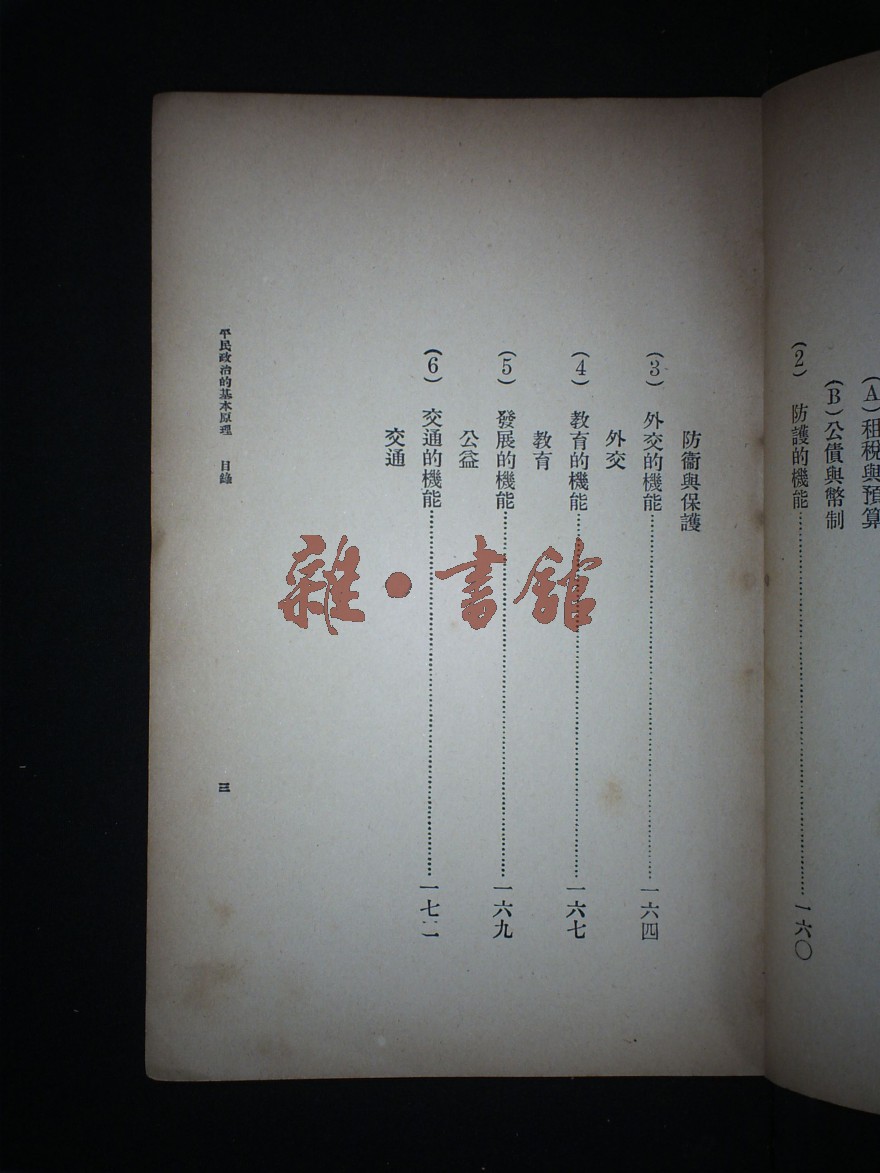 (A)租稅與預算
(B)公債與幣制
(2) 防護的機能…………一六〇
防衞與保護
(3) 外交的機能…………一六四
外交
(4) 教育的機能…………一六七
教育
(5) 發展的機能…………一六九
公益
(6) 交通的機能…………一七二
交通
平民政治的基本原理 目錄
三
雜·書館